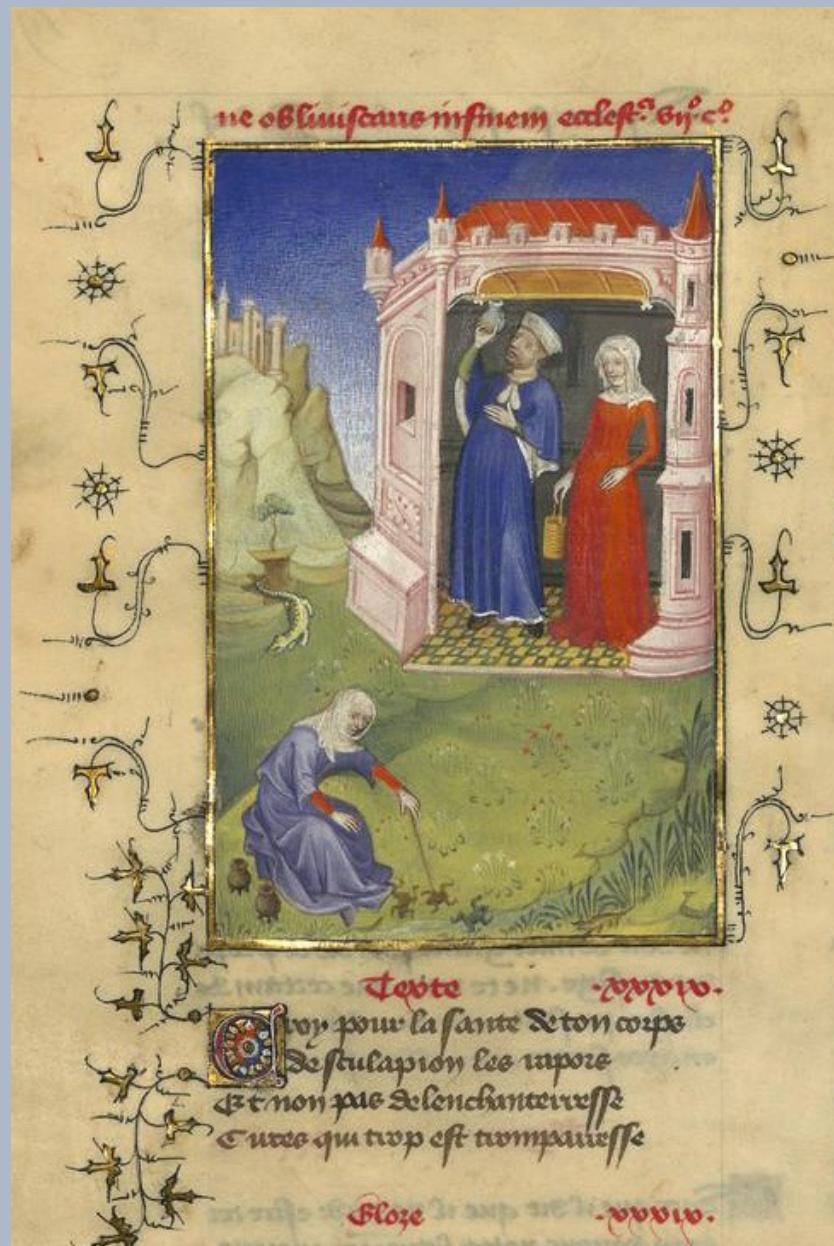 ne obliviscaris in finem ecclesț.ᵃ vijᵒ.cᵒ
Texte .xxxix.
Croy pour la sante de ton corps
desculapion les rapors
Et non pas de lenchanterresse
Cirtes qui trop est tromparesse
Gloze .xxxix.